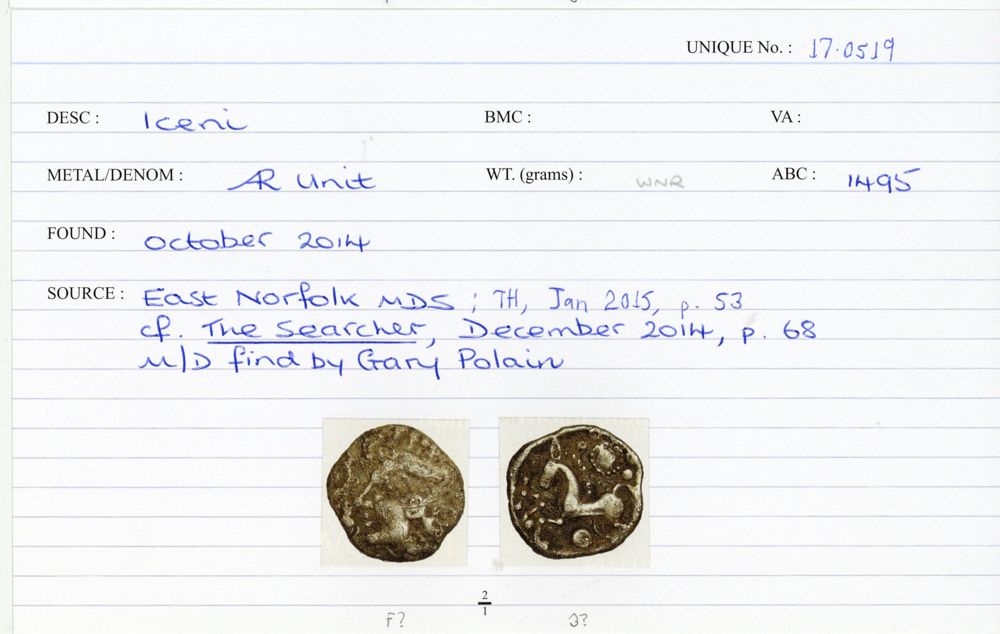 UNIQUE No. : 17.0519
DESC : Iceni BMC : VA :
METAL/DENOM : AR Unit WT. (grams) : WNR ABC : 1495
FOUND : October 2014
SOURCE : East Norfolk MDS ; TH, Jan 2015, p. 53
cf. The Searcher, December 2014, p. 68
M/D find by Gary Polain
2
1
F? 3?